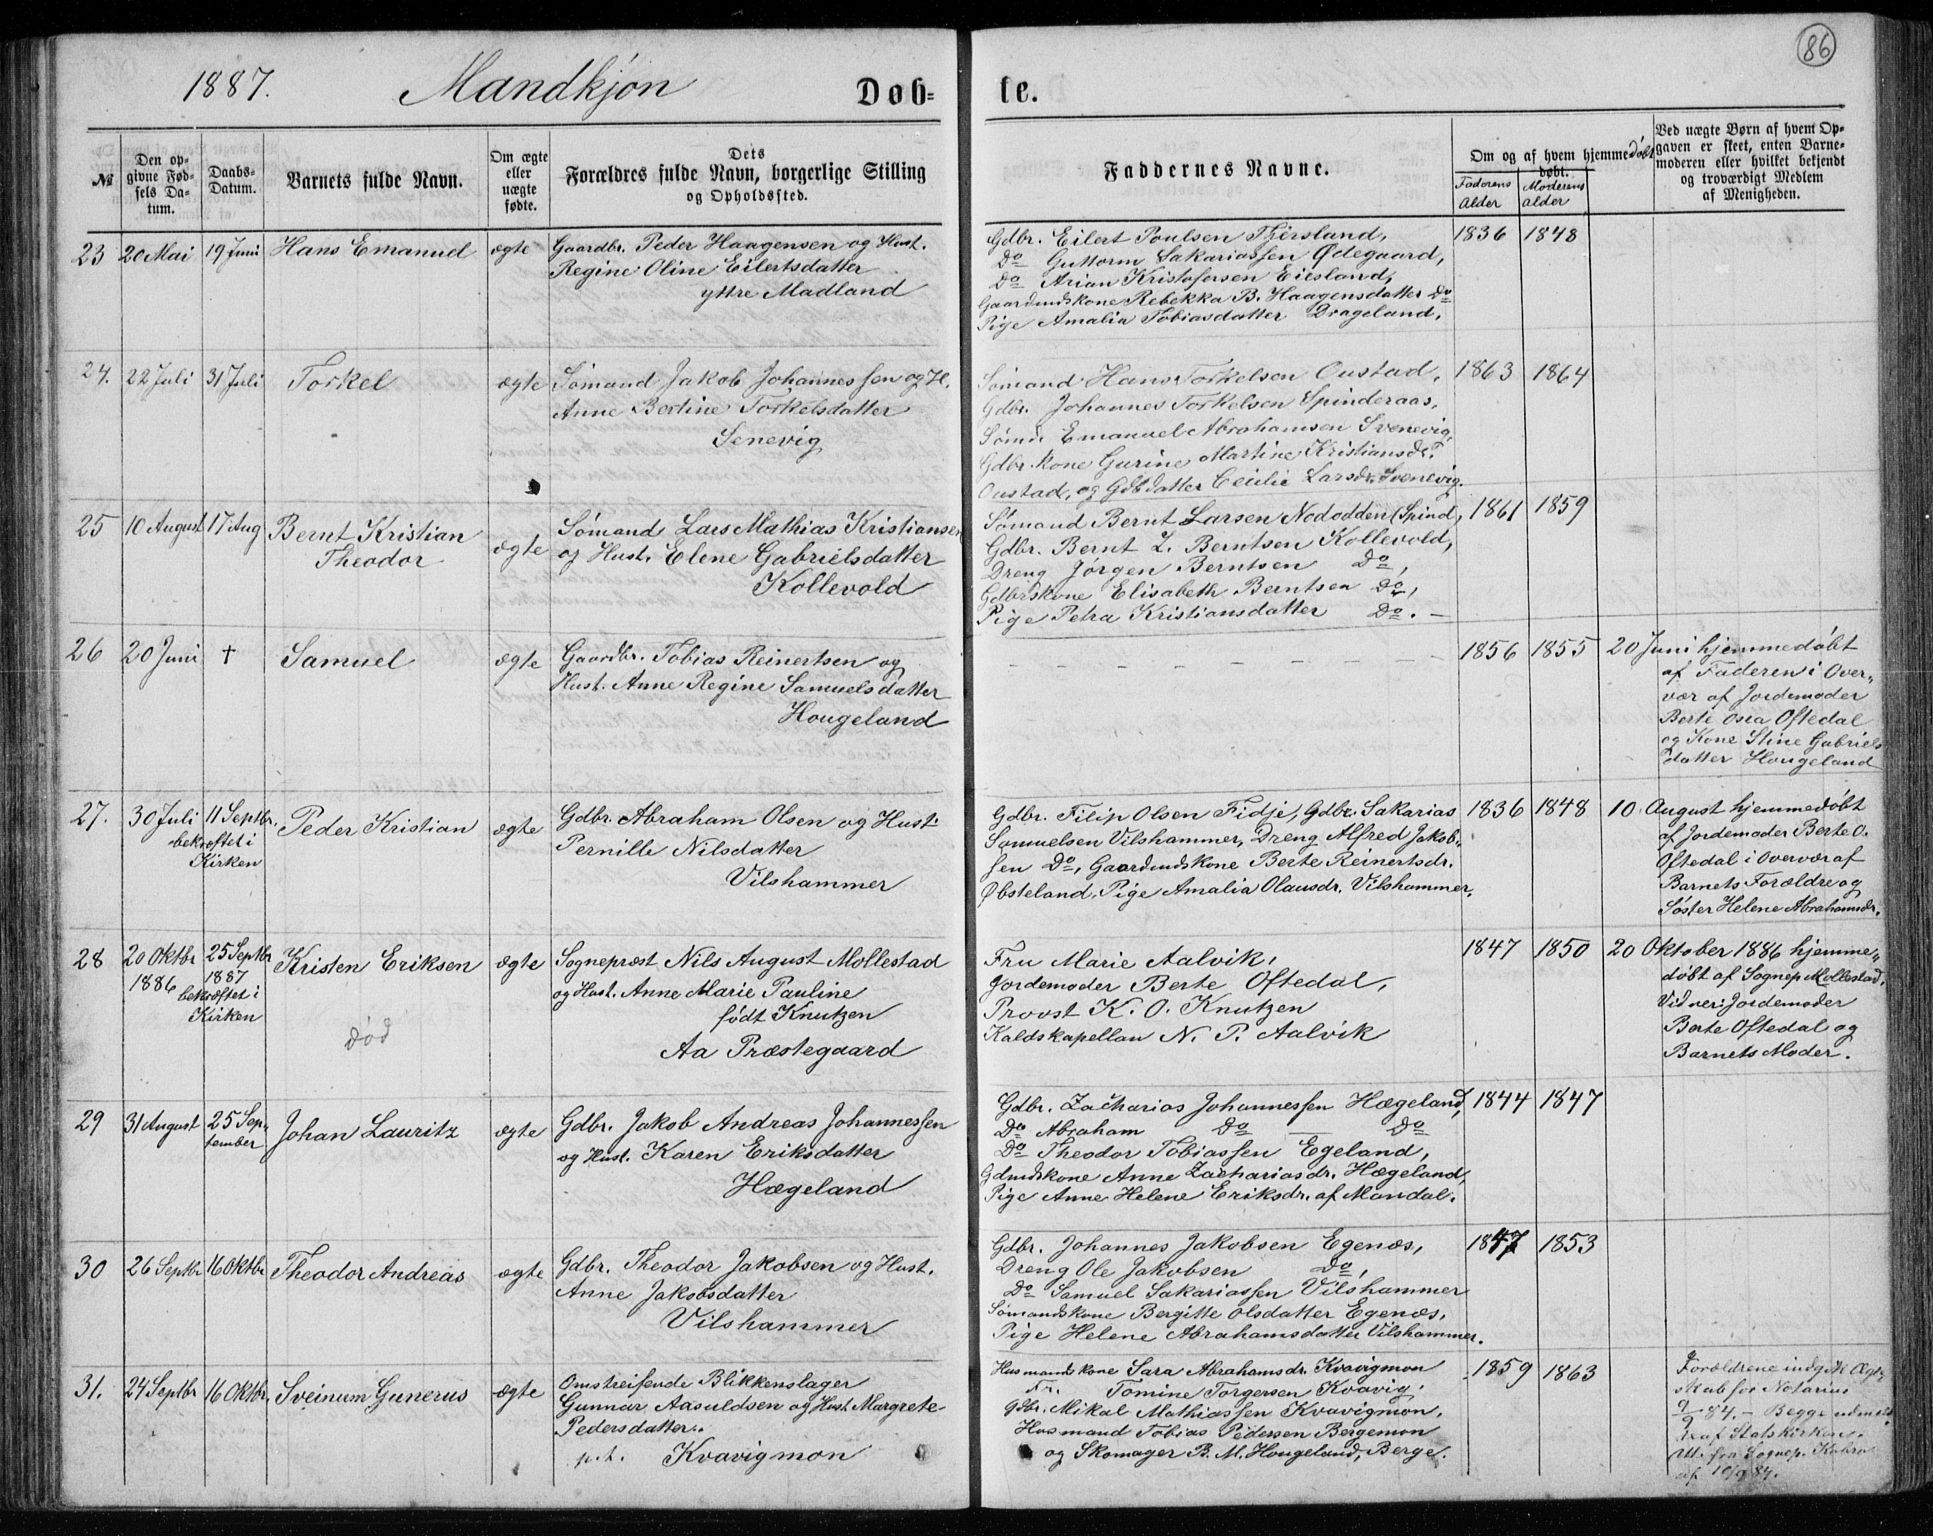 86
1887. Mandkjøn Døb- te.
№
Den op-
givne Fød-
sels Da-
tum.
Daabs-
Datum.
Barnets fulde Navn.
Om ægte
eller
uægte
fødte.
Dets
Forældres fulde Navn, borgerlige Stilling
og Opholdssted.
Faddernes Navne.
Om og af hvem hjemmedøbt
døbt.
Faderens
Alder
Moderens
alder
Ved uægte Børn af hvem Op-
gaven er skeet, enten Barne-
moderen eller hvilket bekjendt
og troværdigt Medlem
af Menigheden.
23 20 Mai 19 Juni Hans Emanuel ægte
Gaardbr. Peder Haagensen og Hust.
Regine Oline Eilertsdatter
yttre Madland
Gdbr. Eilert Poulsen Tjersland,
Do Guttorm Sakariassen Ødegaard,
Do Arian Kristofersen Eiesland,
Gaardmdskone Rebekka B. Haagensdatter Do
Pige Amalia Tobiasdatter Drageland,
1836 1848
24. 22 Juli 31 Juli Torkel ægte
Sømand Jakob Johannessen og H.
Anne Bertine Torkelsdatter
Senevig
Sømand Hans Torkelsen Oustad,
Gdbr. Johannes Torkelsen Spinderaas,
Sømd. Emanuel Abrahamsen Svenevig,
Gdbr. kone Gurine Martine Kristiansdr.
Oustad, og Gdbdatter Ceilie Larsdr. Svenevig.
1863 1864
25 10 August 17 Aug Bernt Kristian
Theodor
ægte
Sømand Lars Mathias Kristiansen
og Hust. Elene Gabrielsdatter
Kollevold
Sømand Bernt Larsen Nododden (Spind,
Gdbr. Bernt Z. Berntsen Kollevold,
Dreng Jørgen Berntsen Do,
Gdberskone Elisabeth Berntsen Do,
Pige Petra Kristiansdatter Do. –
1861 1859
26 20 Juni † Samuel ægte
Gaardbr. Tobias Reinertsen og
Hust. Anne Regine Samuelsdatter
Hougeland
– – – – – – – – –
1856 1855
20 Juni hjemmedøbt
af Faderen i Over-
vær af Jordemoder
Berte Osea Oftedal
og Kone Stine Gabriels
datter Hougeland
27. 30 Juli 11 Septbr.
bekræftet i
Kirken
Peder Kristian ægte
Gdbr. Abraham Olsen og Hust.
Pernille Nilsdatter
Vilshammer
Gdbr. Filip Olsen Fidje, Gdbr. Sakarias
Samuelsen Vilshammer, Dreng Alfred Jakob-
sen Do, Gaardmdskone Berte Reinertsdr.
Øbsteland, Pige Amalia Olausdr. Vilshammer.
1836 1848
10 August hjemmedøbt
af Jordemoder Berte O.
Oftedal i Overvær af
Barnets Forældre og
Søster Helene Abrahamsdr.
28 20 Oktbr
1886
25 Septbr
1887
bekræftet i
Kirken
Kristen Eriksen
død
ægte
Sognepræst Nils August Mollestad
og Hust. Anne Marie Pauline
født Knutzen
Aa Præstegaard
Fru Marie Aalvik,
Jordemoder Berte Oftedal,
Provst K. O. Knutzen
Kaldskapellan N. P. Aalvik
1847 1850
20 Oktober 1886 hjemme-
døbt af Sognep Mollestad.
Vidner: Jordemoder
Berte Oftedal og
Barnets Moder.
29 31 August 25 Sep-
tember
Johan Lauritz ægte
Gdbr. Jakob Andreas Johannessen
og Hust. Karen Eriksdatter
Hægeland
Gdbr. Zacharias Johannessen Hægeland,
Do Abraham Do Do
Do Theodor Tobiassen Egeland,
Gdmdskone Anne Zachariasdr. Hægeland,
Pige Anne Helene Eriksdr. af Mandal.
1844 1847
30 26 Septbr 16 Oktbr Theodor Andreas ægte
Gdbr. Theodor Jakobsen og Hust.
Anne Jakobsdatter
Vilshammer
Gdbr. Johannes Jakobsen Egenæs,
Dreng Ole Jakobsen Do,
Do Samuel Sakariassen Vilshammer
Sømandskone Bergitte Olsdatter Egenæs,
Pige Helene Abrahamsdatter Vilshammer.
1847 1853
31. 24 Septbr 16 Oktbr. Sveinum Gunerus ægte
Omstreifende Blikkenslager
Gunnar Aasuldsen og Hust. Margrete
Pedersdatter.
p.t. Kvavigmon
Husmandskone Sara Abrahamsdr. Kvavigmon
Fr. Tomine Torgersen Kvavig.
Gdbr. Mikal Mathiassen Kvavigmon,
Husmand Tobias Pedersen Bergemon
og Skomager B. M. Hougeland, Berge.
1859 1863
Forældrene indg. Ægte-
skab for Notarius
2/9 84. – Begge udmeldt
af Statskirken.
fra Sognep.
af 10/9 84.